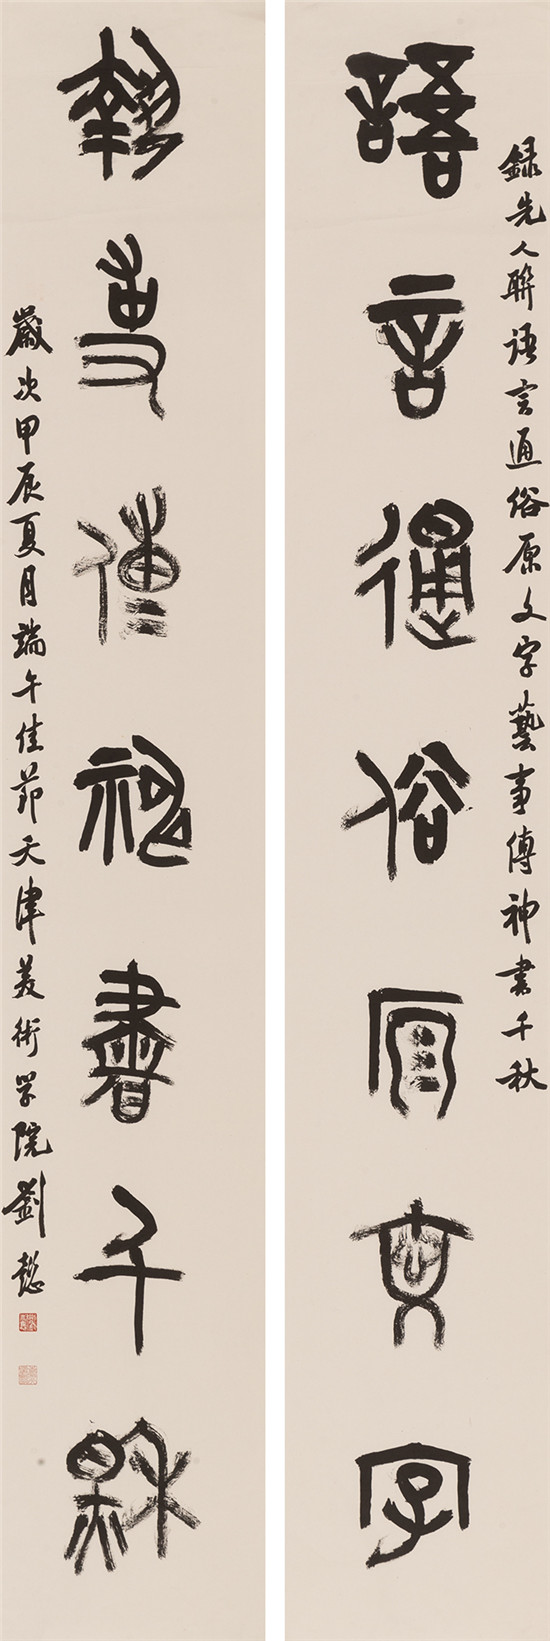 錄先人聯語言通俗原文字藝事傳神書千秋
語言通俗原文字
藝事傳神書千秋
歲次甲辰夏月端午佳節天津美術學院劉懿